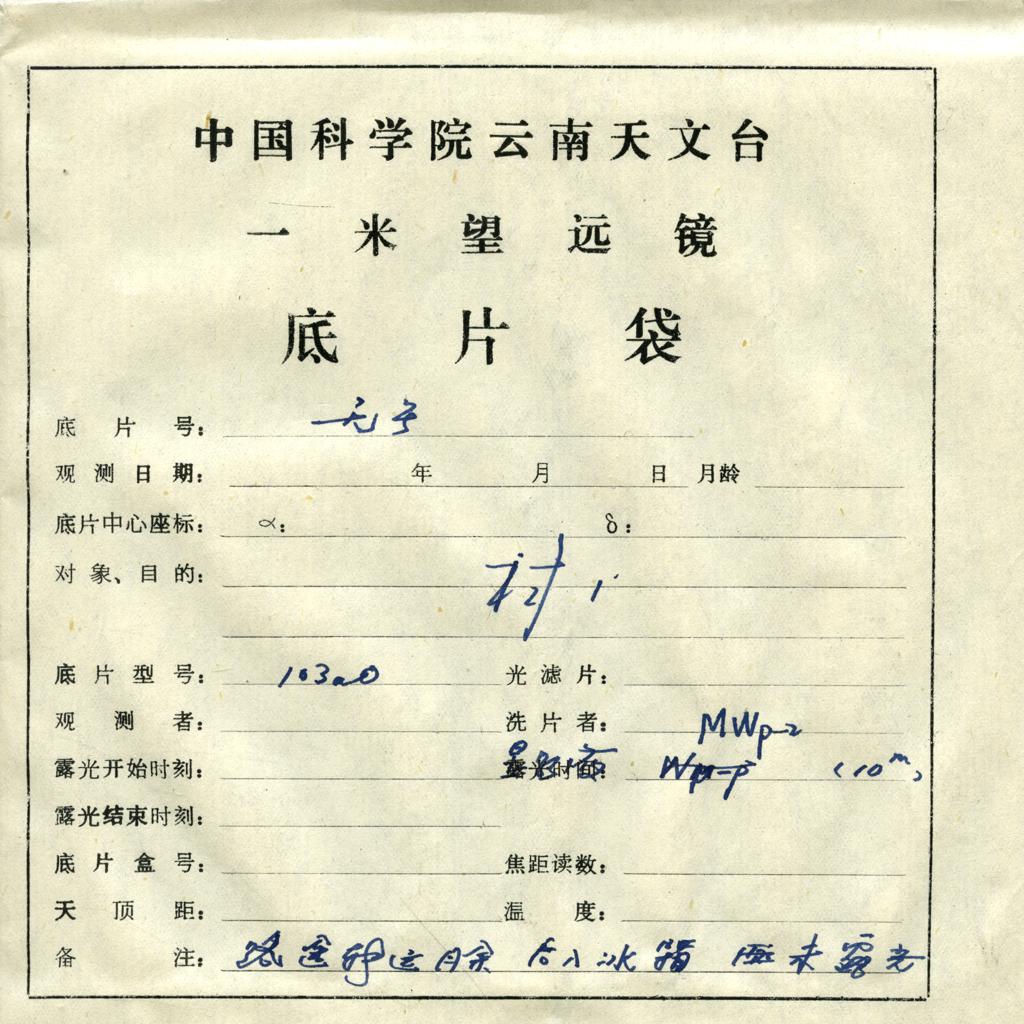 中国科学院云南天文台
一米望远镜
底片袋
底片号: 无号
观测日期: 年 月 日 月龄
底片中心座标: α: δ:
对象、目的:
底片型号: 103aO 光滤片:
观测者: 洗片者: MWP-2
露光开始时刻: 露光时间: (10ᵐ)
露光结束时刻:
底片盒号: 焦距读数:
天顶距: 温度:
备注: 路途邮运月余 后入冰箱 未露光